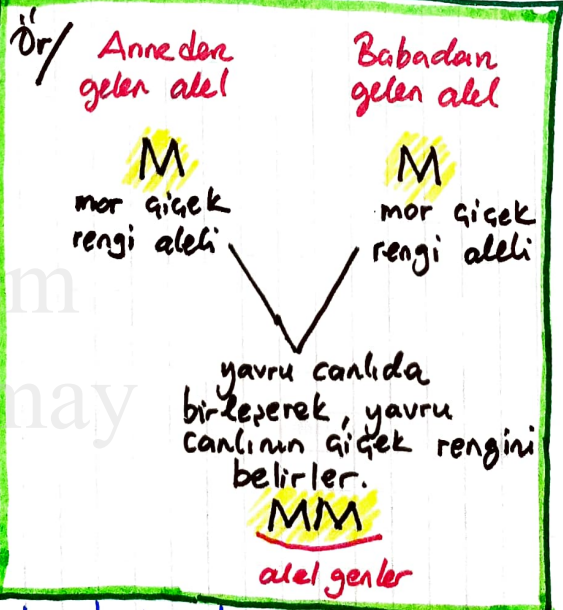 Ör/
Anneden
gelen alel
Babadan
gelen alel
M
mor çiçek
rengi aleli
M
mor çiçek
rengi aleli
yavru canlıda
birleşerek, yavru
canlının çiçek rengini
belirler.
MM
alel genler
m
may